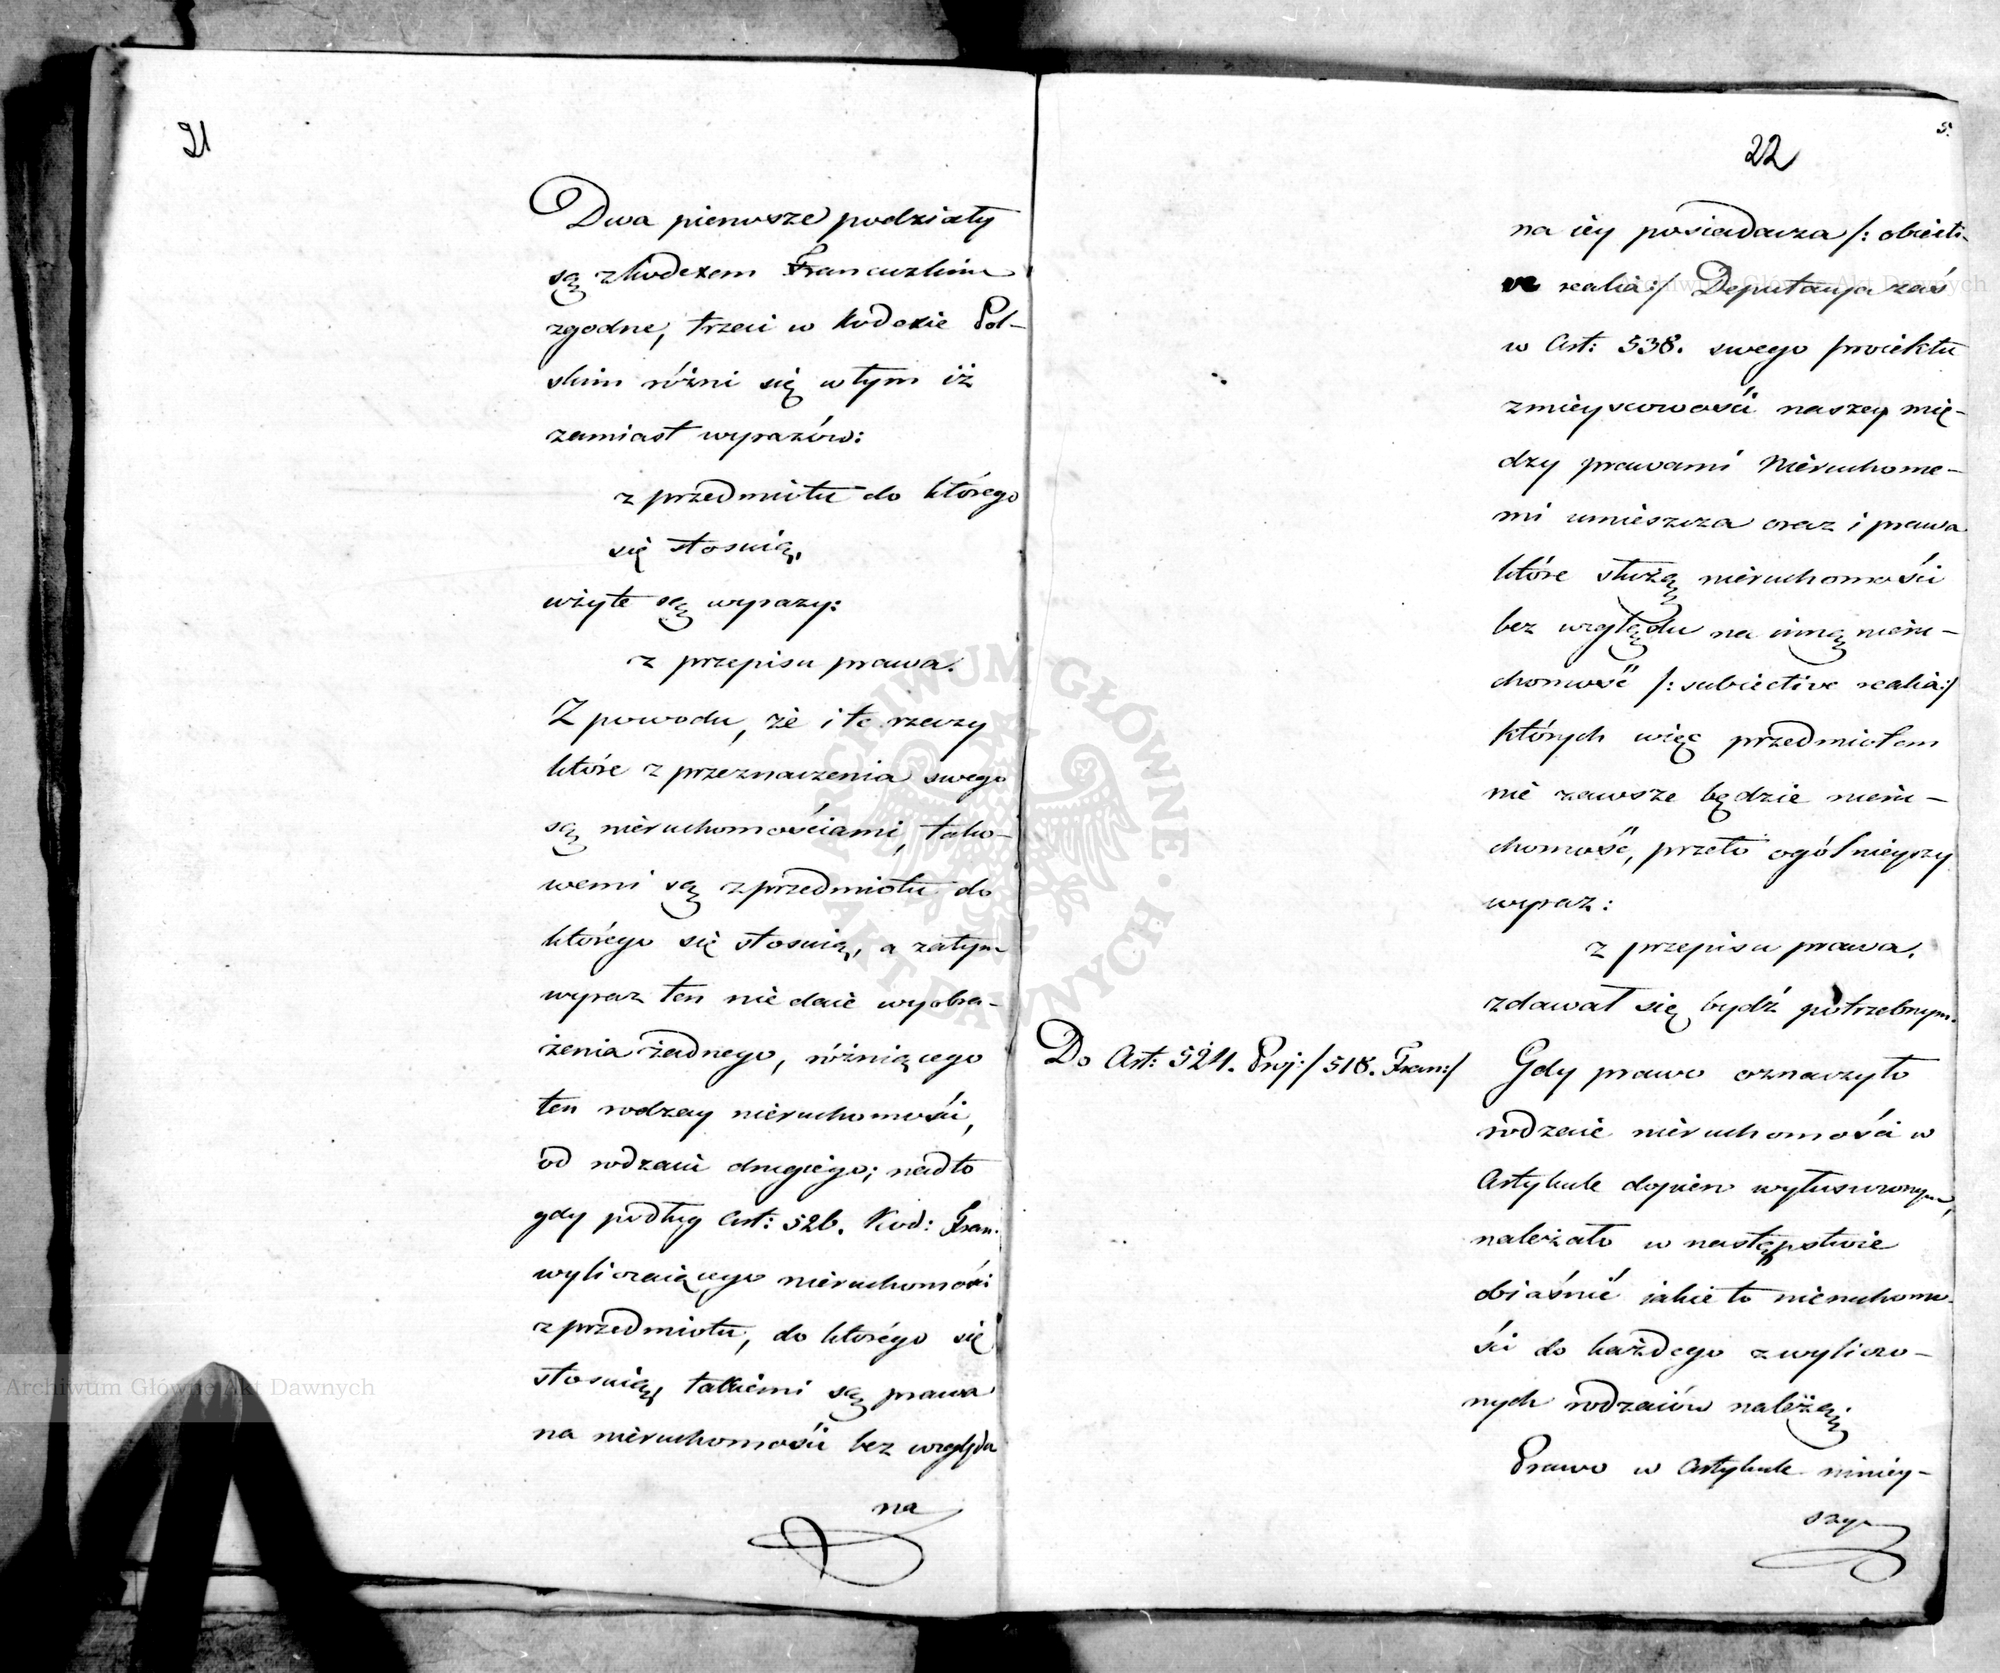 21
Dwa pierwsze podziały
są z kodexem Francuzkim
zgodne, trzeci w kodexie Pol-
skim różni się w tym iż
zamiast wyrazów:
z przedmiotu do którego
się stosuią,
użyte są wyrazy:
z przepisu prawa.
Z powodu, że i te rzeczy
które z przeznaczenia swego
są nieruchomościami, tako-
wemi są z przedmiotu do
którego się stosuią, a zatym
wyraz ten nie daie wyobra-
żenia żadnego, różniącego
ten rodzay nieruchomości,
od rodzaiu drugiego; nadto
gdy podług Art: 526. Kod: Fran.
wyliczaiącego nieruchomości
z przedmiotu, do którego się
stosuią, takiemi są prawa
na nieruchomości bez względu
na
22
5.
na iey posiadacza /: obiecti-
ve realia:/ Deputacya zaś
w Art: 538. swego proiektu
z mieyscowości naszey mię-
dzy prawami Nieruchome-
mi umieszcza oraz i prawa
które służą nieruchomości
bez względu na inną nieru-
chomość /: subiective realia:/
których więc przedmiotem
nie zawsze będzie nieru-
chomość, przeto ogólnieyszy
wyraz:
z przepisu prawa.
zdawał się bydź potrzebnym.
Do Art: 524. Proj:/ 518. Fran:/
Gdy prawo oznaczyło
rodzaie nieruchomości w
Artykule dopiero wyłuszczonym,
należało w następstwie
obiaśnić iakie to nieruchomo-
ści do każdego z wyliczo-
nych rodzaiów należą;
Prawo w Artykule niniey-
szym
Archiwum Główne Akt Dawnych
ARCHIWUM GŁÓWNE AKT DAWNYCH
Archiwum Główne Akt Dawnych